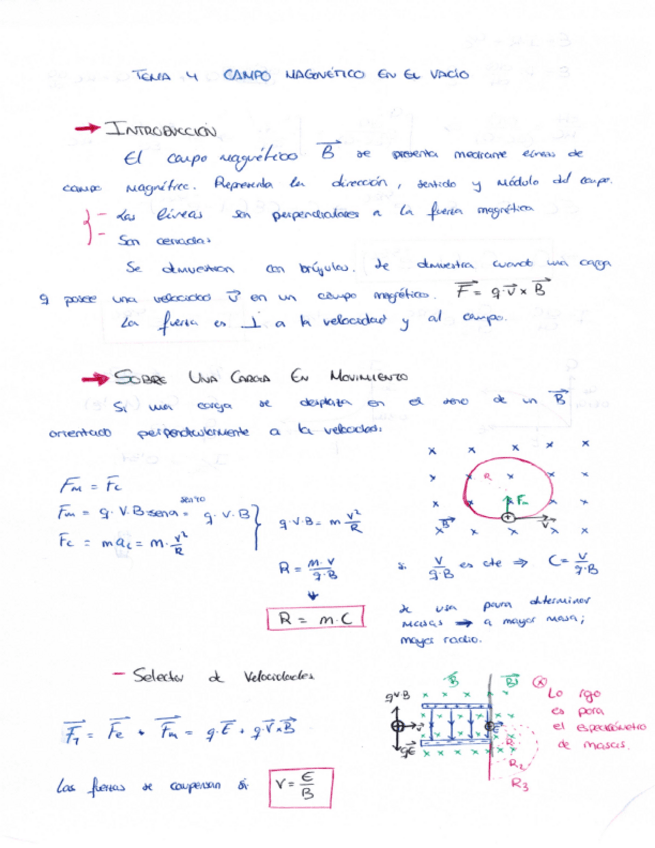 TEMA 4 CAMPO MAGNÉTICO EN EL VACÍO
→ INTRODUCCIÓN
El campo magnético B⃗ se presenta mediante líneas de
campo magnético. Representa la dirección, sentido y módulo del campo.
- Las líneas son perpendiculares a la fuerza magnética
- Son cerradas
Se demuestran con brújulas. Se demuestra cuando una carga
q posee una velocidad v⃗ en un campo magnético. F⃗ = q·v⃗ × B⃗
La fuerza es ⊥ a la velocidad y al campo.
→ SOBRE UNA CARGA EN MOVIMIENTO
Si una carga se desplaza en el seno de un B⃗
orientado perpendicularmente a la velocidad:
Fm = Fc
Fm = q·V·B senα = q·V·B
sen 90
Fc = m ac = m·v²/R
q·V·B = m v²/R
R = m·v/q·B
R = m·C
R
Fm
B⃗
V⃗
si v/q·B es cte ⇒ C = v/q·B
Se usa para determinar
masas → a mayor masa;
mayor radio.
- Selector de Velocidades
F⃗T = F⃗e + F⃗m = q·E⃗ + q·V⃗×B⃗
Las fuerzas se compensan si V = E/B
qvB
qE⃗
v
B⃗
B⃗'
E⃗
R
R2
R3
⊗ Lo rojo
es para
el espectrómetro
de masas.